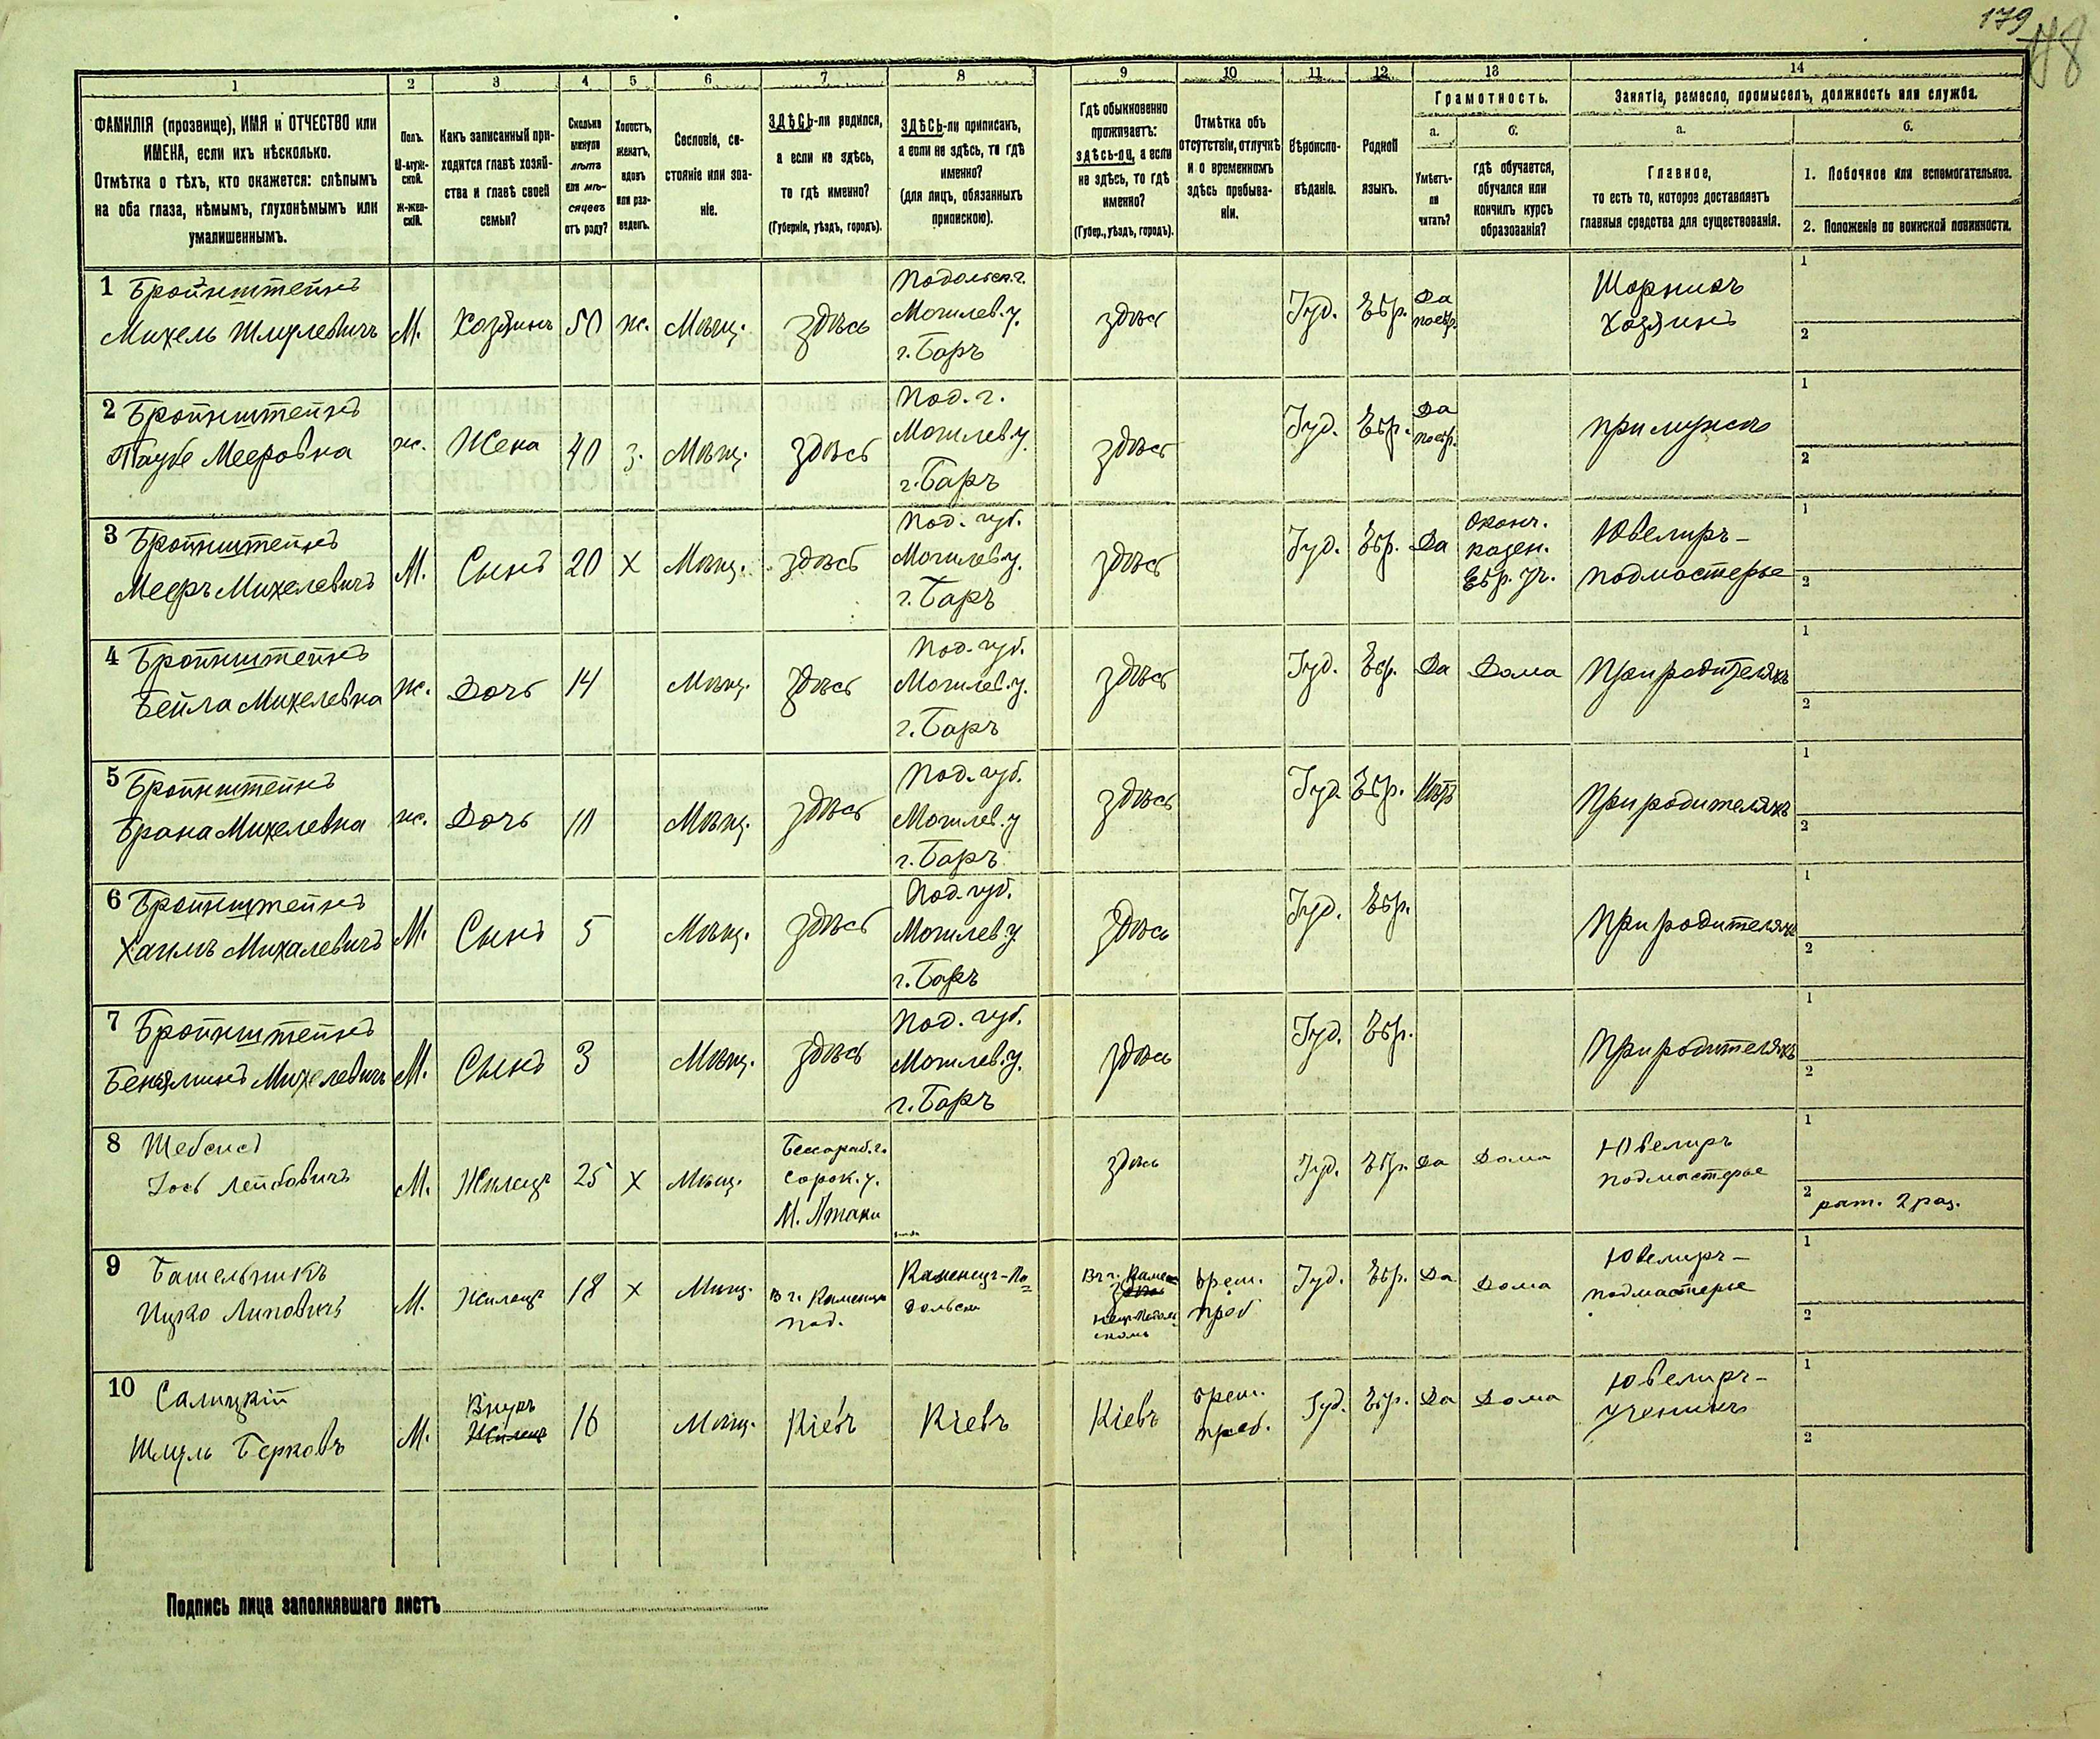 179
48
1
2
3
4
5
6
7
8
9
10
11
12
13
14
ФАМИЛІЯ (прозвище), ИМЯ и ОТЧЕСТВО или
ИМЕНА, если ихъ нѣсколько.
Отмѣтка о тѣхъ, кто окажется: слѣпымъ
на оба глаза, нѣмымъ, глухонѣмымъ или
умалишеннымъ.
Полъ.
М-муж-
ской.
Ж-жен-
скій.
Какъ записанный при-
ходится главѣ хозяй-
ства и главѣ своей
семьи?
Сколько
минуло
лѣтъ
или мѣ-
сяцевъ
отъ роду?
Холостъ,
женатъ,
вдовъ
или раз-
веденъ.
Сословіе, со-
стояніе или зва-
ніе.
ЗДѢСЬ-ли родился,
а если не здѣсь,
то гдѣ именно?
(Губернія, уѣздъ, городъ).
ЗДѢСЬ-ли приписанъ,
а если не здѣсь, то гдѣ
именно?
(для лицъ, обязанныхъ
припискою).
Гдѣ обыкновенно
проживаетъ:
здѣсь-ли, а если
не здѣсь, то гдѣ
именно?
(Губер., уѣздъ, городъ).
Отмѣтка объ
отсутствіи, отлучкѣ
и о временномъ
здѣсь пребыва-
ніи.
Вѣроиспо-
вѣданіе.
Родной
языкъ.
Грамотность.
а.
б.
Умѣетъ-
ли
читать?
гдѣ обучается,
обучался или
кончилъ курсъ
образованія?
Занятіа, рамесло, промыселъ, должность или служба.
а.
б.
Главное,
то есть то, которое доставляетъ
главныя средства для существованія.
1. Побочное или вспомогательное.
2. Положеніе по воинской повинности.
1 Бройнштейнъ
Михель Шмулевичъ М. Хозяинъ 50 ж. Мѣщ. здѣсь
Подольск. г.
Могилев. у.
г. Баръ
здѣсь Іуд. Евр. Да
по евр.
Шорникъ
Хозяинъ
1
2
2 Бройнштейнъ
Таубе Мееровна ж. Жена 40 з. Мѣщ. здѣсь
Под. г.
Могилев у.
г. Баръ
здѣсь Іуд. Евр. Да
по евр.
при мужѣ
1
2
3 Бройнштейнъ
Мееръ Михелевичъ М. Сынъ 20 Х Мѣщ. здѣсь
Под. губ.
Могилев у.
г. Баръ
здѣсь Іуд. Евр. Да
Оконч.
казен.
Евр. уч.
Ювелиръ-
подмастерье
1
2
4 Бройнштейнъ
Бейла Михелевна ж. Дочь 14 Мѣщ. здѣсь
Под. губ.
Могилев. у.
г. Баръ
здѣсь Іуд. Евр. Да Дома При родителяхъ
1
2
5 Бройнштейнъ
Брана Михелевна ж. Дочь 10 Мѣщ. здѣсь
Под. губ.
Могилев. у
г. Баръ
здѣсь Іуд Евр. Нѣтъ При родителяхъ
1
2
6 Бройнштейнъ
Хаимъ Михалевичъ М. Сынъ 5 Мѣщ. здѣсь
Под. губ.
Могилев. у.
г. Баръ
здѣсь Іуд. Евр. При родителяхъ
1
2
7 Бройнштейнъ
Беньяминъ Михелевичъ М. Сынъ 3 Мѣщ. здѣсь
Под. губ.
Могилев. у.
г. Баръ
здѣсь Іуд. Евр. При родителяхъ
1
2
8
Лейбовичъ М. Жилецъ 25 Х Мѣщ.
Бессараб. г.
Сорок. у.
М. Атаки
здѣсь Іуд. Евр. Да Дома
Ювелиръ
подмастерье
1
2 рат. 2 раз.
9
М. Жилецъ 18 Х Мѣщ.
В г. Каменцѣ
Под.
Каменец-По
дольск
врем.
преб
Іуд. Евр. Да Дома
Ювелиръ-
подмастерье
1
2
10 Салицкій
Шмуль Берковъ М. Внукъ
Жилецъ
16 Мѣщ. Кіевъ Кіевъ Кіевъ
врем.
преб.
Іуд. Евр. Да Дома
Ювелиръ-
ученикъ
1
2
Подпись лица заполнявшаго листъ